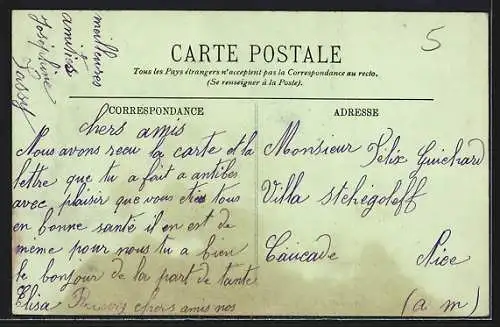 5
CARTE POSTALE
Tous les Pays étrangers n'acceptent pas la Correspondance au recto.
(Se renseigner à la Poste).
CORRESPONDANCE
chers amis
Nous avons recu la carte et la
lettre que tu a fait a antibes
avec plaisir que vous eties tous
en bonne santé il en est de
même pour nous tu a bien
le bonjour de la part de tante
Elisa chers amis nos
meilleures
amitiés
Joséphine
ADRESSE
Monsieur Félix Guichard
Villa stchégoleff
Caucade Nice
(a m)